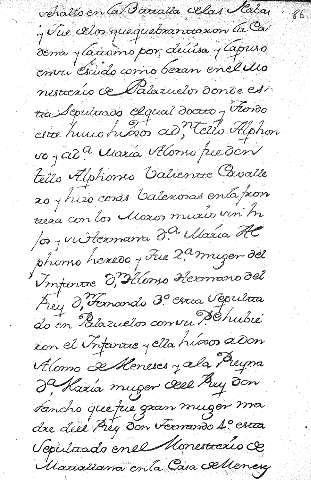 se hallo en la Batalla de las Nabas 86
y fue delos que quebrantaron la Ca
dena y la tomo por, deuisa y la puso
en su Escudo como beran en el Mo
nesterio de Palazuelos donde es
tta Sepultado el qual doctto y fondo
este hubo hixos a dⁿ tello Alphon
so y a dª Maria Alonso fue don
tello Alphonso Valiente Cavalle
ro y hizo cosas Valerosas en la fron
tera con los Moros murio sin hi
jos y su Hermana dª Maria Al
phonso heredo y fue 2ª muger del
Infante dⁿ Alonso Hermano del
Rey dⁿ fernando 3º esta Sepulta
do en Palazuelos con su Pᵉ hubie
ron el Infante y ella hixos a don
Alonso de Meneses y a la Reyna
dª Maria muger del Rey don
Sancho que fue gran muger ma
dre del Rey don fernando 4º esta
Sepultado en el Monesterio de
Mattallana en la Casa de Menes